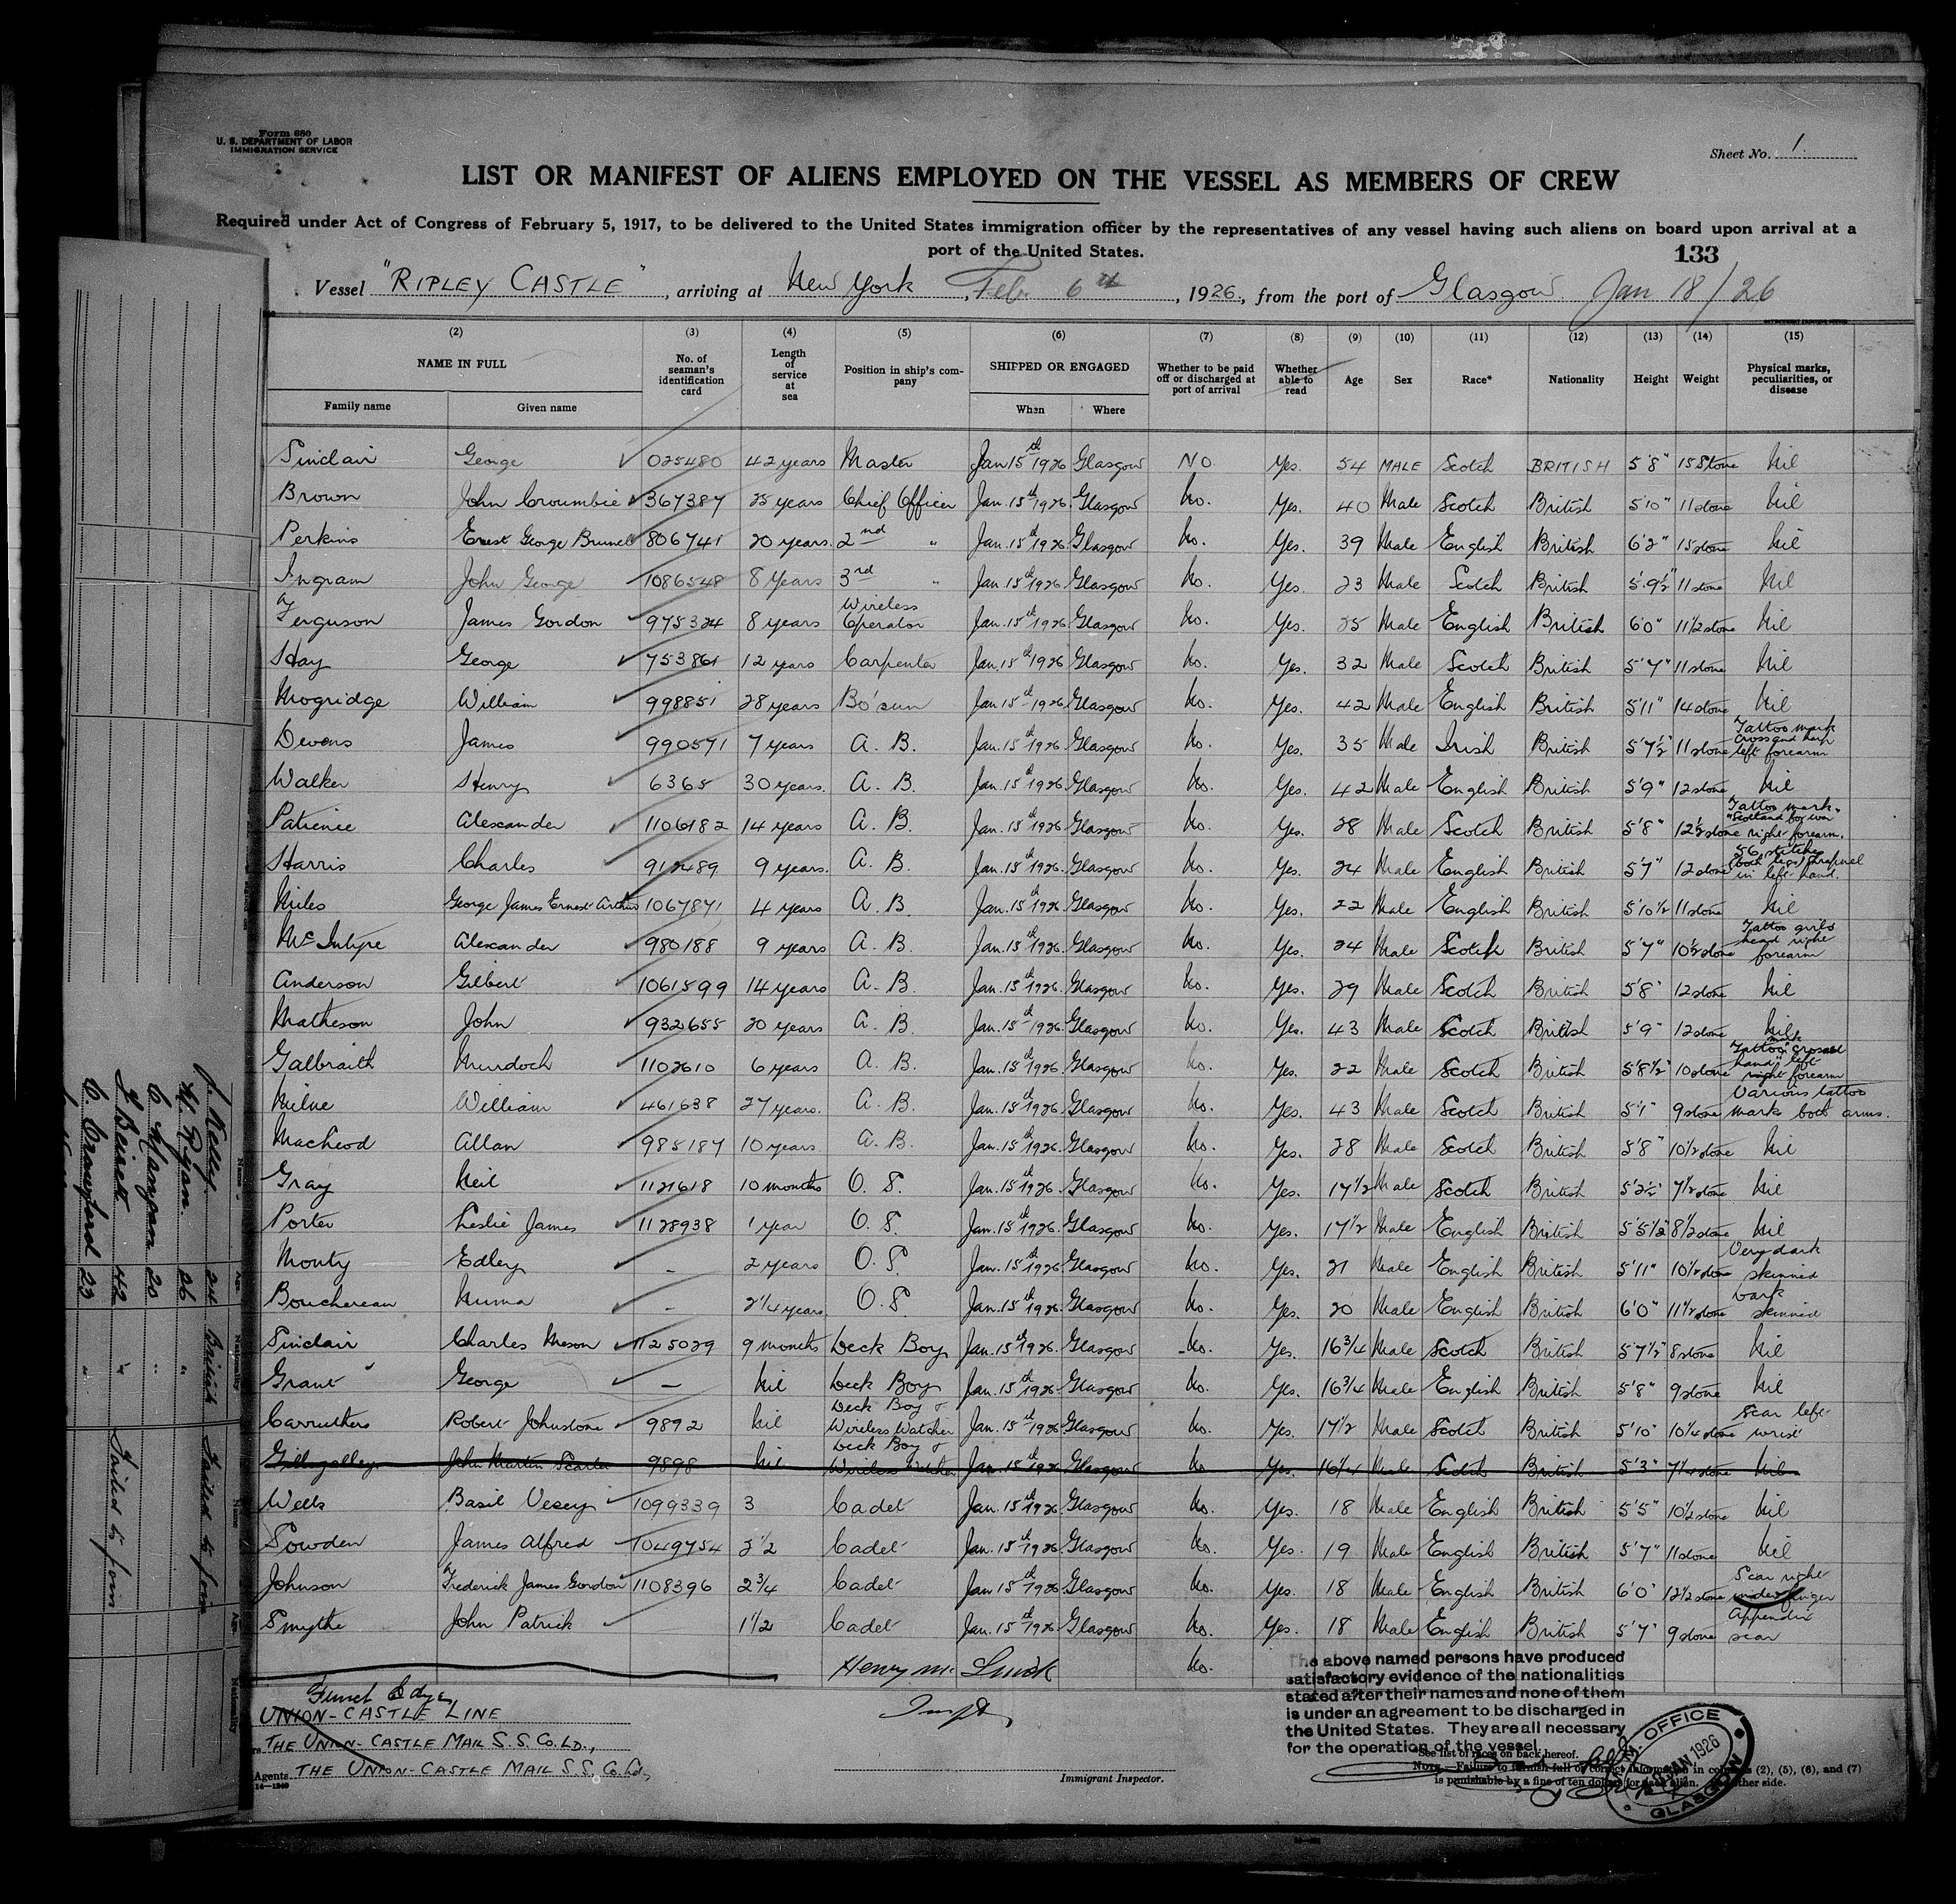 Form 680
U. S. DEPARTMENT OF LABOR
IMMIGRATION SERVICE
Sheet No. 1
LIST OR MANIFEST OF ALIENS EMPLOYED ON THE VESSEL AS MEMBERS OF CREW
Required under Act of Congress of February 5, 1917, to be delivered to the United States immigration officer by the representatives of any vessel having such aliens on board upon arrival at a
port of the United States.
133
Vessel "RIPLEY CASTLE", arriving at New York, Feb. 6th, 1926, from the port of Glasgow Jan 18/26
(2) (3) (4) (5) (6) (7) (8) (9) (10) (11) (12) (13) (14) (15)
NAME IN FULL No. of seaman's identification card Length of service at sea Position in ship's company SHIPPED OR ENGAGED Whether to be paid off or discharged at port of arrival Whether able to read Age Sex Race* Nationality Height Weight Physical marks, peculiarities, or disease
Family name Given name When Where
Sinclair George 025480 42 years Master Jan 15th 1926 Glasgow NO Yes. 54 MALE Scotch BRITISH 5'8" 15 Stone Nil
Brown John Croumbie 367387 25 years Chief Officer Jan. 15th 1926 Glasgow No. Yes. 40 Male Scotch British 5'10" 11 stone Nil
Perkins Ernest George Brunell 806741 20 years. 2nd " Jan. 15th 1926 Glasgow No. Yes. 39 Male English British 6'2" 15 stone Nil
Ingram John George 1086548 8 Years 3rd " Jan. 15th 1926 Glasgow No. Yes 23 Male Scotch British 5'9½" 11 stone Nil
Ferguson James Gordon 975324 8 years Wireless Operator Jan. 15th 1926 Glasgow No. Yes. 25 Male English British 6'0" 11½ stone Nil
Hay George 753861 12 years Carpenter Jan. 15th 1926 Glasgow No. Yes. 32 Male Scotch British 5'7" 11 stone Nil
Mogridge William 998851 28 years Bo'sun Jan 15th 1926 Glasgow No. Yes. 42 Male English British 5'11" 14 stone Nil
Devons James 990571 7 years A. B. Jan. 15th 1926 Glasgow No. Yes. 35 Male Irish British 5'7½" 11 stone Tattoo mark cross and harp left forearm
Walker Henry 6365 30 years. A. B. Jan. 15th 1926 Glasgow No. Yes. 42 Male English British 5'9" 12 stone Nil
Patience Alexander 1106182 14 years A. B. Jan. 15th 1926 Glasgow No. Yes. 28 Male Scotch British 5'8" 12½ stone Tattoo mark. "Scotland for ever" right forearm.
Harris Charles 912489 9 years. A. B. Jan. 15th 1926 Glasgow No. Yes. 24 Male English British 5'7" 12 stone 56 stitches (both legs) shrapnel in left hand.
Niles George James Ernest Arthur 1067871 4 years A. B. Jan. 15th 1926 Glasgow No. Yes. 22 Male English British 5'10½ 11 stone Nil
McIntyre Alexander 980188 9 years A. B. Jan. 15th 1926 Glasgow No. Yes. 24 Male Scotch British 5'7" 10½ stone Tattoo girls head right forearm
Anderson Gilbert 1061599 14 years A. B. Jan. 15th 1926 Glasgow No. Yes. 29 Male Scotch British 5'8" 12 stone Nil
Matheson John 932655 20 years A. B. Jan. 15th 1926 Glasgow No. Yes. 43 Male Scotch British 5'9" 12 stone Nil
Galbraith Murdoch 1102610 6 years A. B. Jan. 15th 1926 Glasgow No. Yes. 22 Male Scotch British 5'8½" 10 stone Tattoo mark "crossed hand" left right forearm
Milne William 461638 27 years. A. B. Jan. 15th 1926 Glasgow No. Yes. 43 Male Scotch British 5'1" 9 stone Various tattoo marks both arms.
MacLeod Allan 985187 10 years A. B. Jan. 15th 1926 Glasgow No. Yes. 28 Male Scotch British 5'8" 10½ stone Nil
Gray Neil 1121618 10 months O. S. Jan. 15th 1926 Glasgow No. Yes. 17½ Male Scotch British 5'2½" 7½ stone Nil
Porter Leslie James 1128938 1 year O. S. Jan. 15th 1926 Glasgow No. Yes. 17½ Male English British 5'5½ 8½ stone Nil
Monty Edley - 2 years O. S. Jan. 15th 1926 Glasgow No. Yes. 21 Male English British 5'11" 10½ stone Very dark skinned
Bouchereau Numa - 2¼ years O. S. Jan. 15th 1926 Glasgow No. Yes. 20 Male English British 6'0" 11½ stone Dark skinned
Sinclair Charles Meson 1125029 9 months Deck Boy Jan. 15th 1926 Glasgow No. Yes. 16¾ Male Scotch British 5'7½" 8 stone Nil
Grant George - Nil Deck Boy Jan. 15th 1926 Glasgow No. Yes. 16¾ Male English British 5'8" 9 stone Nil
Carruthers Robert Johnstone 9892 Nil Deck Boy & Wireless Watcher Jan. 15th 1926 Glasgow No. Yes. 17½ Male Scotch British 5'10" 10¼ stone Scar left wrist
John Martin 9898 Nil Deck Boy & Wireless Watcher Jan. 15th 1926 Glasgow No. Yes. 16¼ Male Scotch British 5'3" 7¼ stone Nil
Wells Basil Vesey 1099339 3 Cadet Jan. 15th 1926 Glasgow No. Yes. 18 Male English British 5'5" 10½ stone Nil
Sowden James Alfred 1049754 3½ Cadet Jan. 15th 1926 Glasgow No. Yes. 19 Male English British 5'7" 11 stone Nil
Johnson Frederick James Gordon 1108396 2¾ Cadet Jan 15th 1926 Glasgow No. Yes. 18 Male English British 6'0" 12½ stone Scar right index finger
Smythe John Patrick 1½ Cadet Jan. 15th 1926 Glasgow No. Yes. 18 Male English British 5'7" 9 stone Appendix scar
Henry No.
The above named persons have produced
satisfactory evidence of the nationalities
stated after their names and none of them
is under an agreement to be discharged in
the United States. They are all necessary
for the operation of the vessel
Funch Edye
UNION-CASTLE LINE
THE UNION-CASTLE MAIL S.S. Co. LD.,
Agents THE UNION-CASTLE MAIL S.S. Co. Ld.,
14-1240
Immigrant Inspector.
*See list of races on back hereof.
NOTE.—Failure to furnish full or correct information in columns (2), (5), (6), and (7)
is punishable by a fine of ten dollars for each alien. other side.
OFFICE
JAN 1926
GLASGOW
Name Age Nationality Name Age Nationality
J. Kelly 24 British Failed to join
W. Ryan. 26 "
C Mangan 20 "
42 " Failed to join
C Crawford 23 "